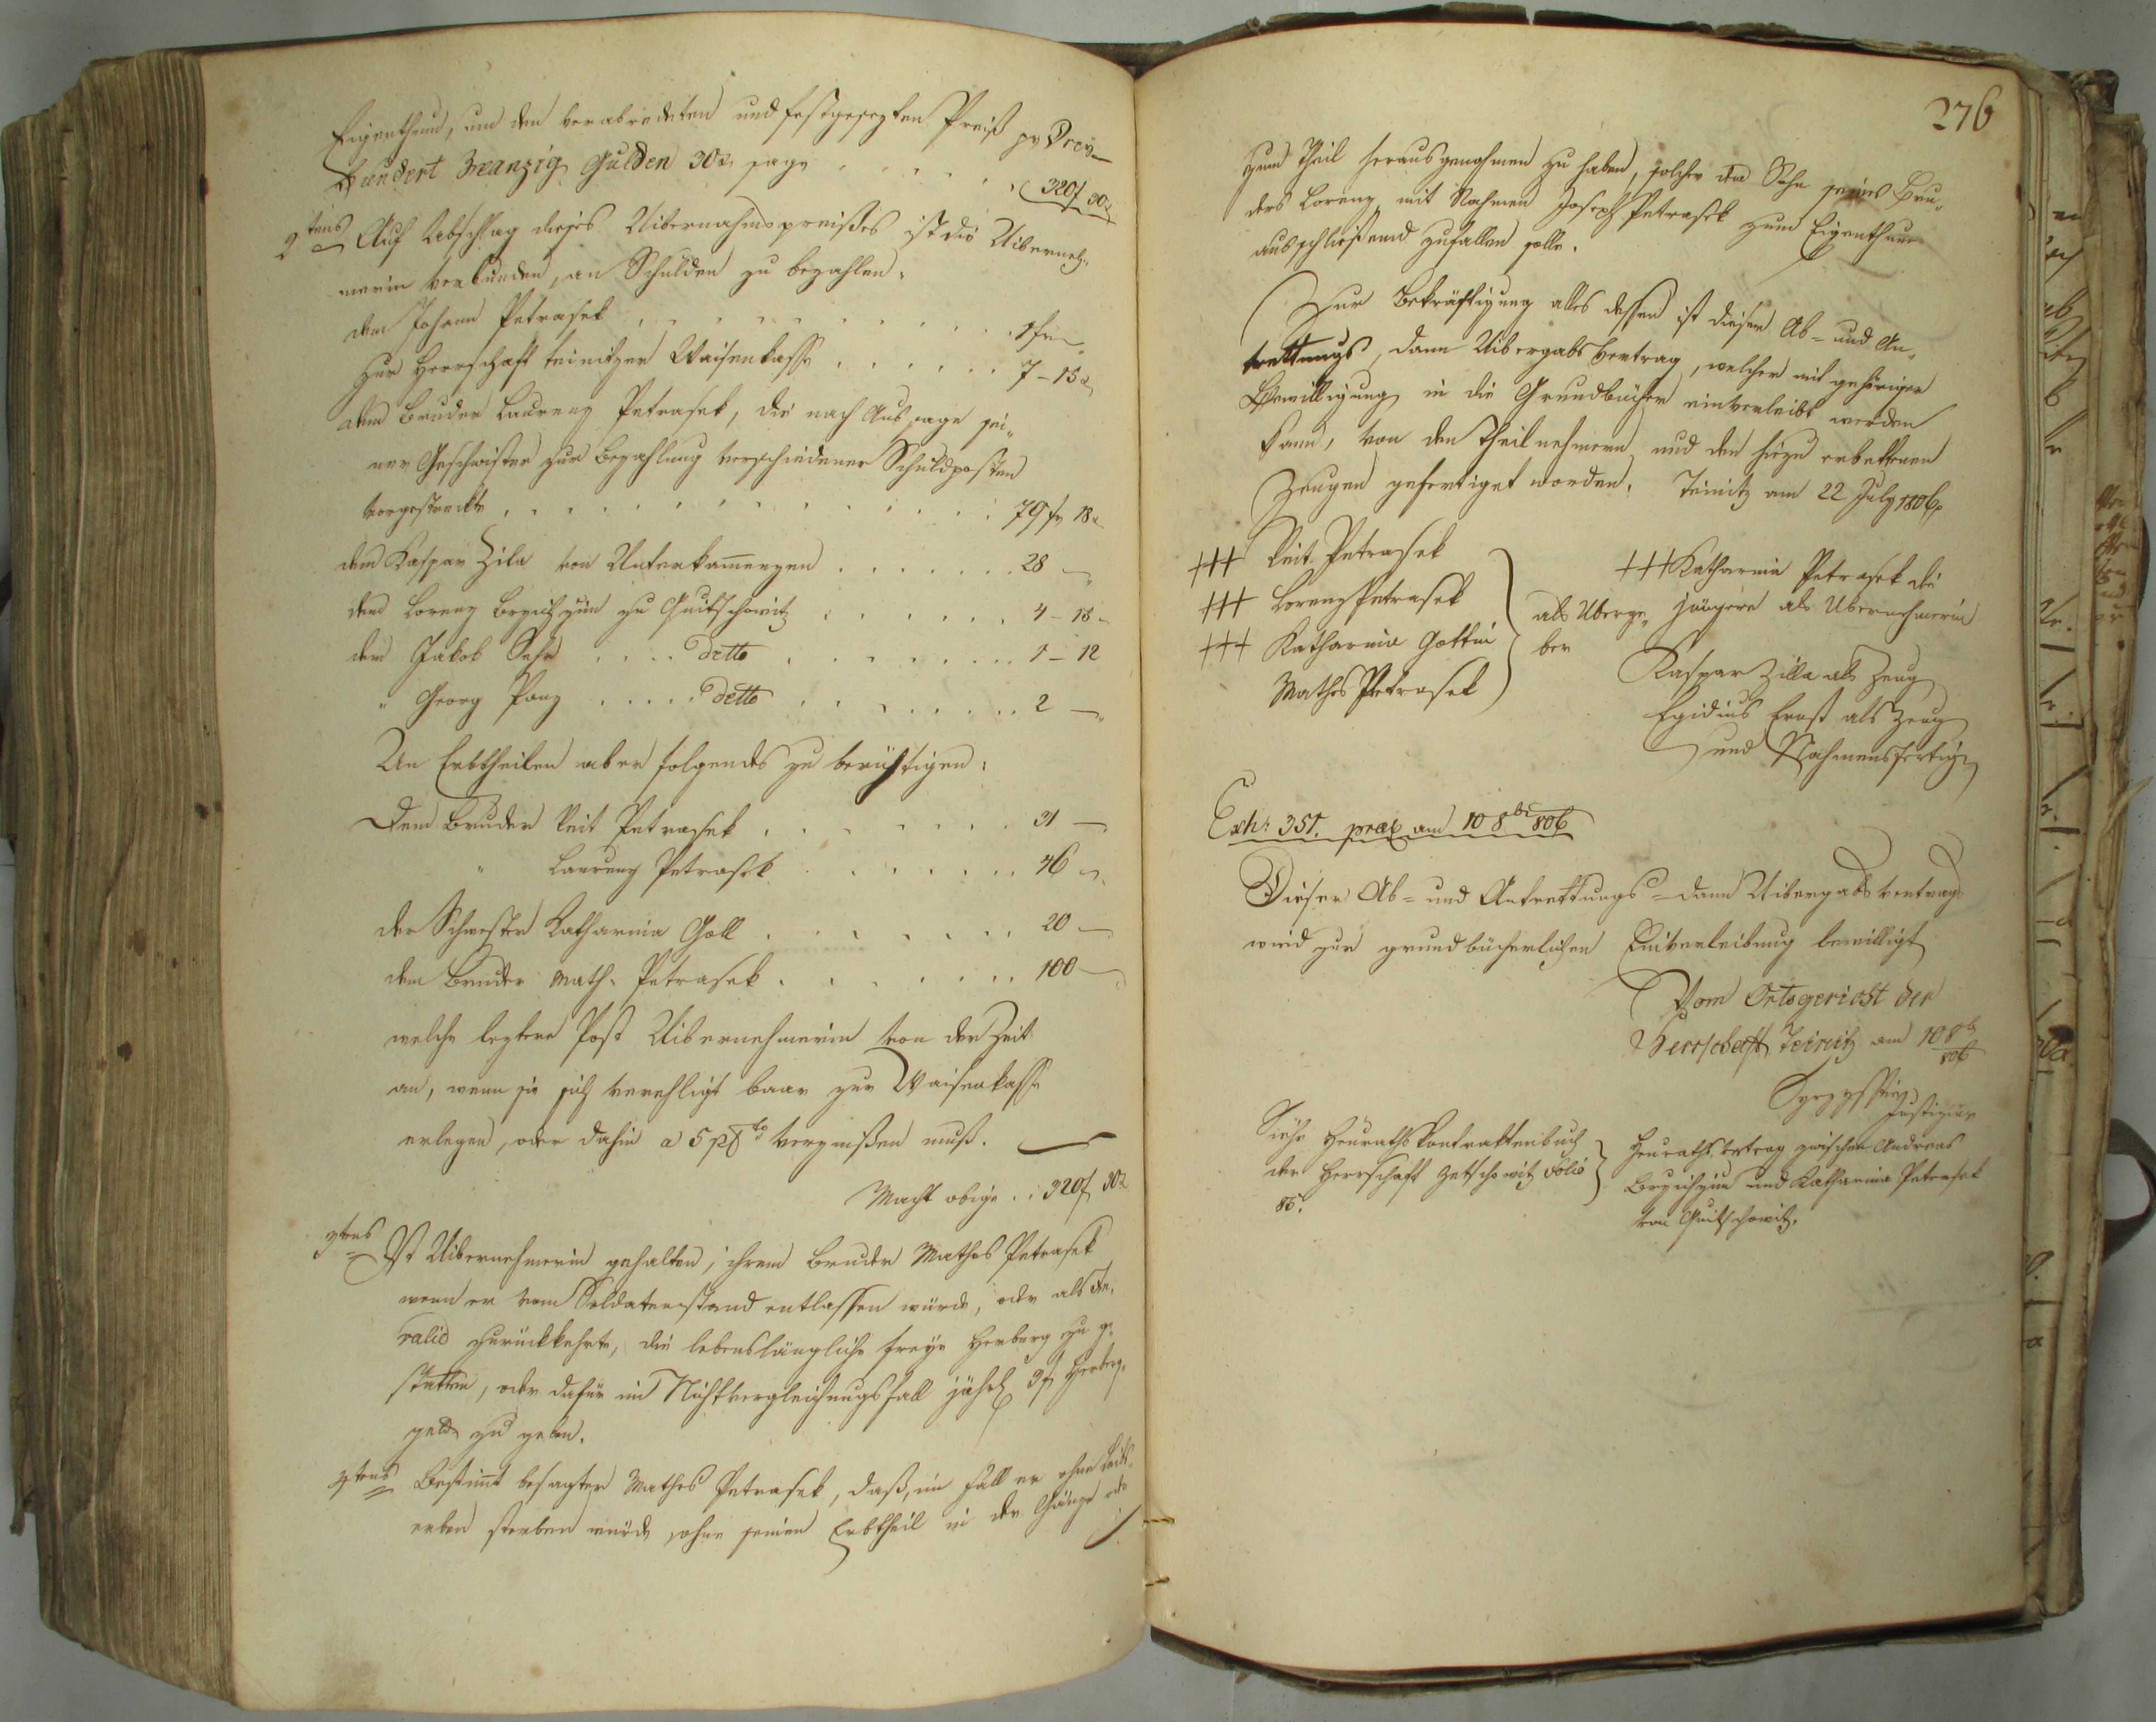 Eigenthum, um den verabredeten und festgesezten Preiß pr Drey-
hundert Zwanzig Gulden 30 x sage . . . . . . 320f 30x
2tens Auf Abschlag dieses Uibernahmspreißes ist die Uiberneh-
merin verbunden, an Schulden zu bezahlen:
dem Johann Petrasek . . . . . . . . . 1 f
zur Herrschaft teinitzer Waisenkasse . . . . . . 7 - 15 x
dem Bruder Laurenz Petrasek, die nach Aussage sei-
ner Geschwister zur Bezahlung verschiedener Schuldposten
vorgestreckte . . . . . . . . . 79 f 18 x
dem Kaspar Zila von Unterkamenzen . . . . . . . 28 —
dem Lorenz Brzichzin zu Quitschowitz . . . . . . 4 - 18
dem Jakob Sehr . . . . detto . . . . . . . . 1 - 12
" Georg Panz . . . . . detto . . . . . . . . 2 —
An Erbtheilen aber folgendes zu berichtigen:
Dem Bruder Veit Petrasek . . . . . . . 31 —
" Laurenz Petrasek . . . . . . . 46 —
der Schwester Katharina Goll . . . . . . . 20 —
dem Bruder Math. Petrasek . . . . . . . 100 —
welche leztere Post Uibernehmerin von der Zeit
an, wenn sie sich verehligt baar zur Waisenkasse
erlegen, oder dahin a 5 pCto verzinßen muß.
Macht obige . . 320f 30x
3tens Ist Uibernehmerin gehalten, ihrem Bruder Mathes Petrasek
wenn er vom Soldatenstand entlassen würde, oder als In-
valid zurückkehrte, die lebenslängliche freye Herberg zu ge-
statten, oder dafür im Nichtvergleichungsfall jährl 3 f Herberg-
geld zu geben.
4tens Bestimt besagter Mathes Petrasek, daß, im Fall er ohne Leibs-
erben sterben würde, ohne seinen Erbtheil in der Gänze oder
276
zum Theil herausgenohmen zu haben, solcher dem Sohn seines Bru-
ders Lorenz mit Nahmen Joseph Petrasek zum Eigenthum
ausschließend zufallen solle.
Zur Bekräftigung alles dessen ist dieser Ab- und An-
trettungs, dann Uibergabs Vertrag, welcher mit gehöriger
Bewilligung in die Grundbücher einverleibt werden
kann, von den Theilnehmern und den hiezu erbettenen
Zeugen gefertiget worden. Teinitz am 22 July 1806
+++ Veit Petrasek
+++ Lorenz Petrasek
+++ Katharina Gollin
Mathes Petrasek
als Uberge-
ber
+++ Katharina Petrasek die
jüngere als Ubernehmerin
Kaspar Zilla als Zeug
Egidius Ernst als Zeug
und Nahmensfertiger
Exh: 351. præs am 10 8br 806
Dieser Ab- und Antrettungs- dann Uibergabsvertrag
wird zur grundbücherlichen Einverleibung bewilligt
Vom Ortsgericht der
Herrschaft Teinitz am 10 8b 806
Justiziar
Siehe Heuraths Kontraktenbuch
der Herrschaft Zetschowitz Folio
85.
Heurathsvertrag zwischen Andreas
Brzichzin und Katharina Petrasek
von Quitschowitz.